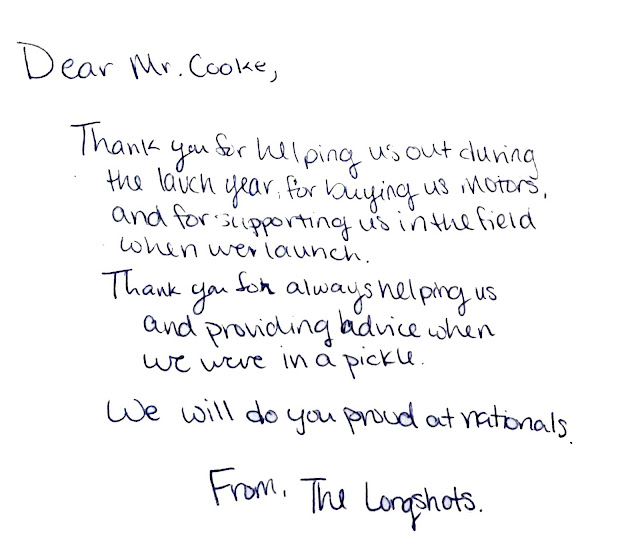 Dear Mr. Cooke,
Thank you for helping us out during
the lauch year, for buying us motors,
and for supporting us in the field
when we launch.
Thank you for always helping us
and providing advice when
we were in a pickle.
We will do you proud at nationals.
From, The Longshots.